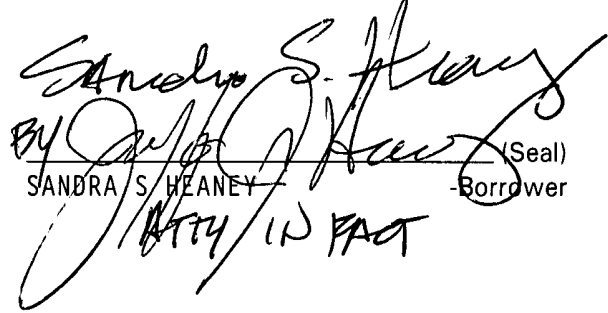 Sandra S. Heaney
BY Heaney (Seal)
SANDRA S HEANEY -Borrower
ATTY IN FACT